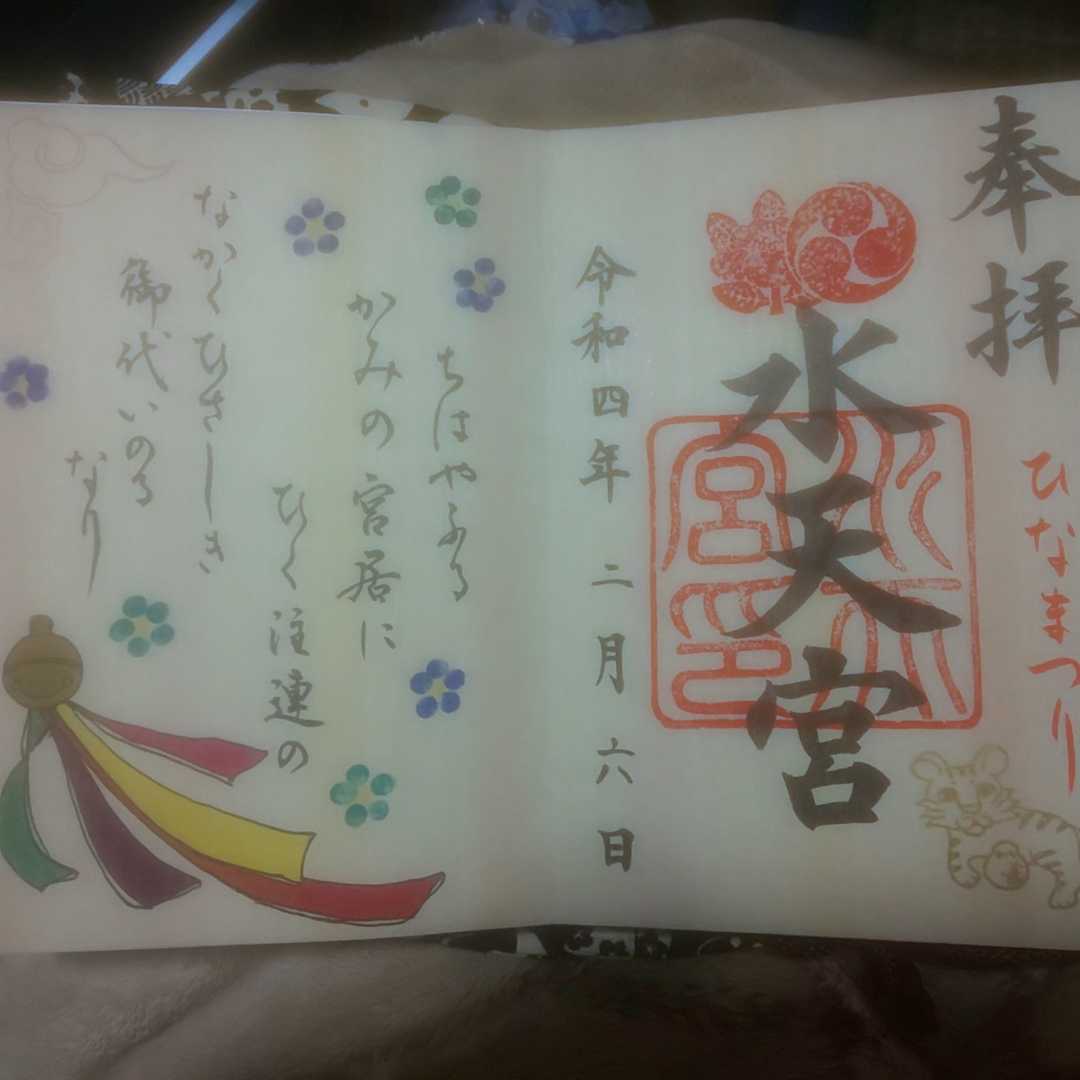 奉拝
ひなまつり
水天宮
水天宮印
令和四年 二月 六日
ちはやふる
かみの宮居に
ひく注連の
なかくひさしき
御代いのる
なり